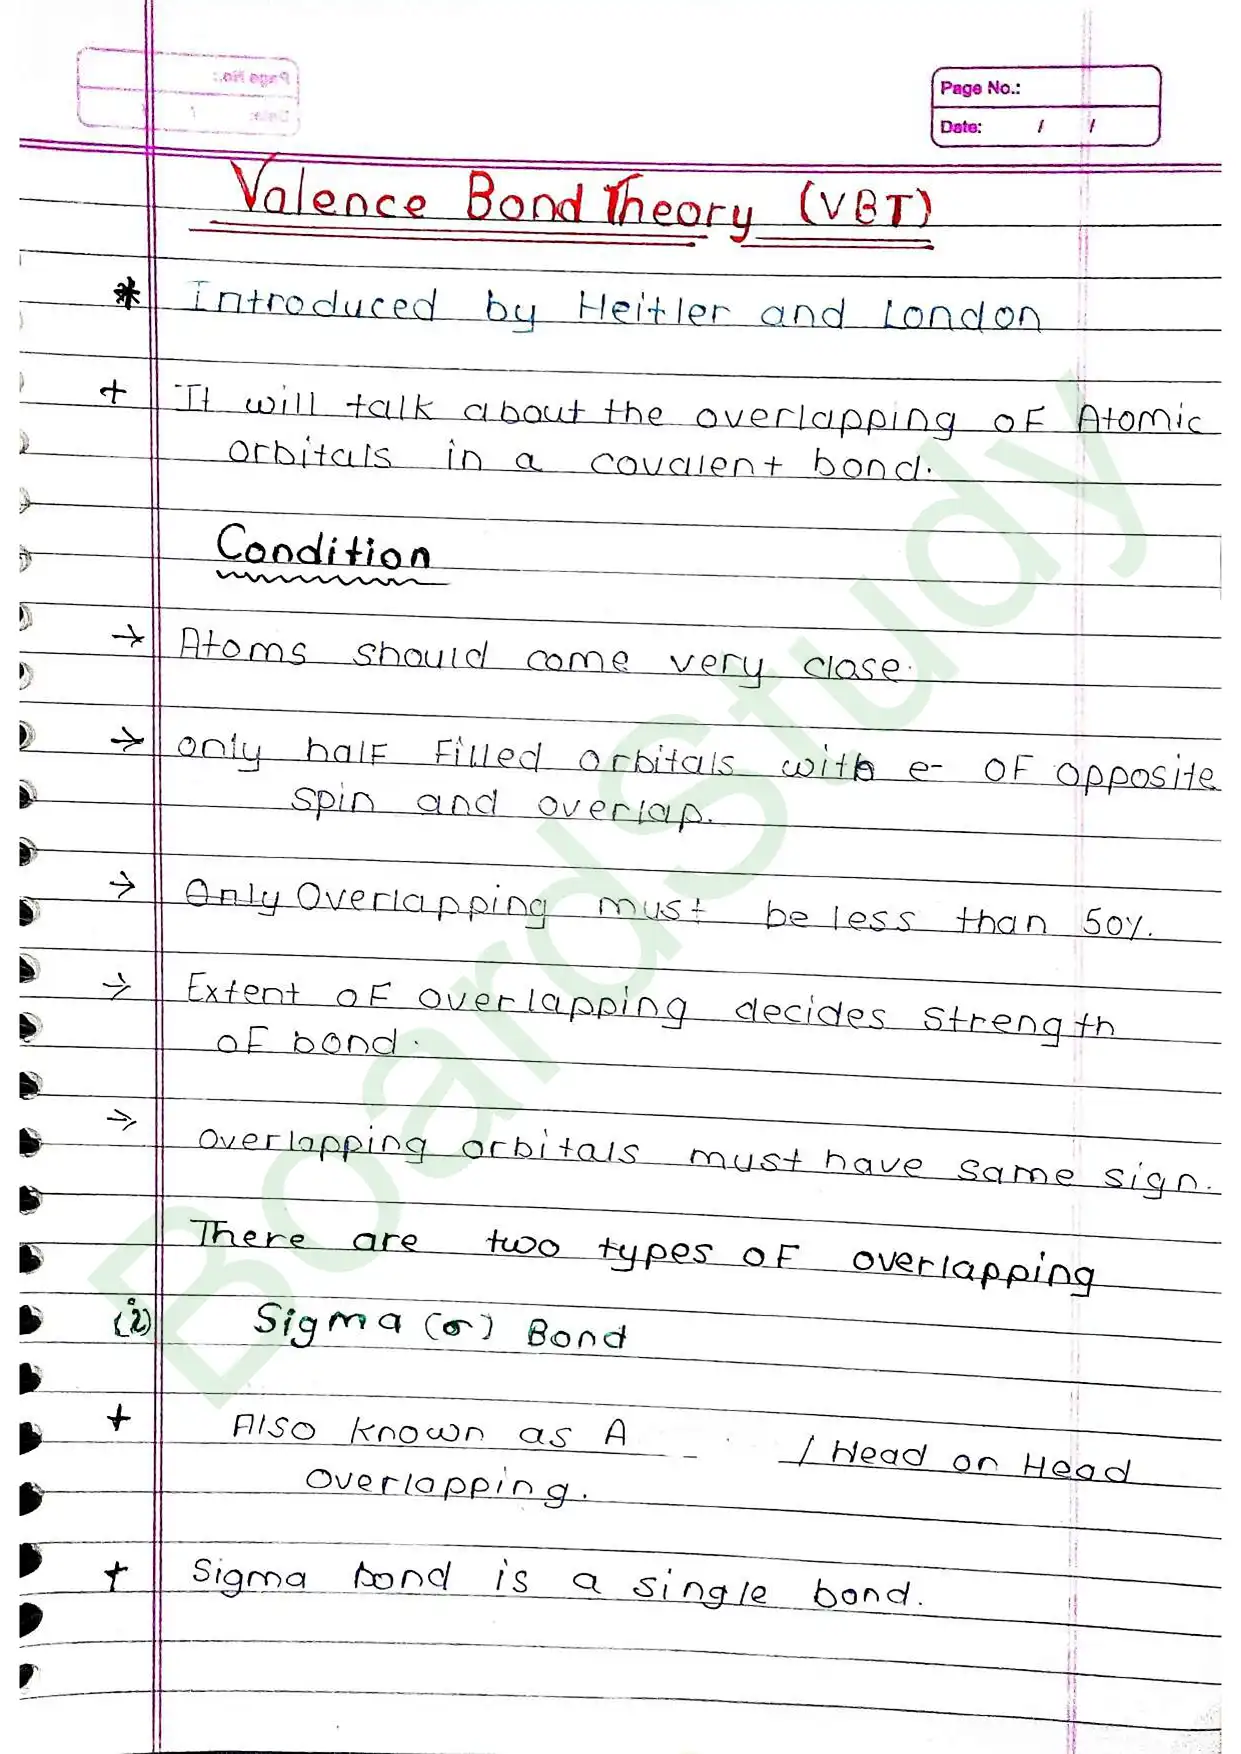 Page No.:
Date: / /
Valence Bond Theory (VBT)
* Introduced by Heitler and London
+ It will talk about the overlapping of Atomic
orbitals in a covalent bond.
Condition
→ Atoms should come very close.
→ only half filled orbitals with e- of opposite
spin and overlap.
→ Only Overlapping must be less than 50%.
→ Extent of overlapping decides strength
of bond.
→ overlapping orbitals must have same sign.
There are two types of overlapping
(i) Sigma (σ) Bond
+ Also known as A / Head on Head
overlapping.
+ Sigma bond is a single bond.
BoardStudy